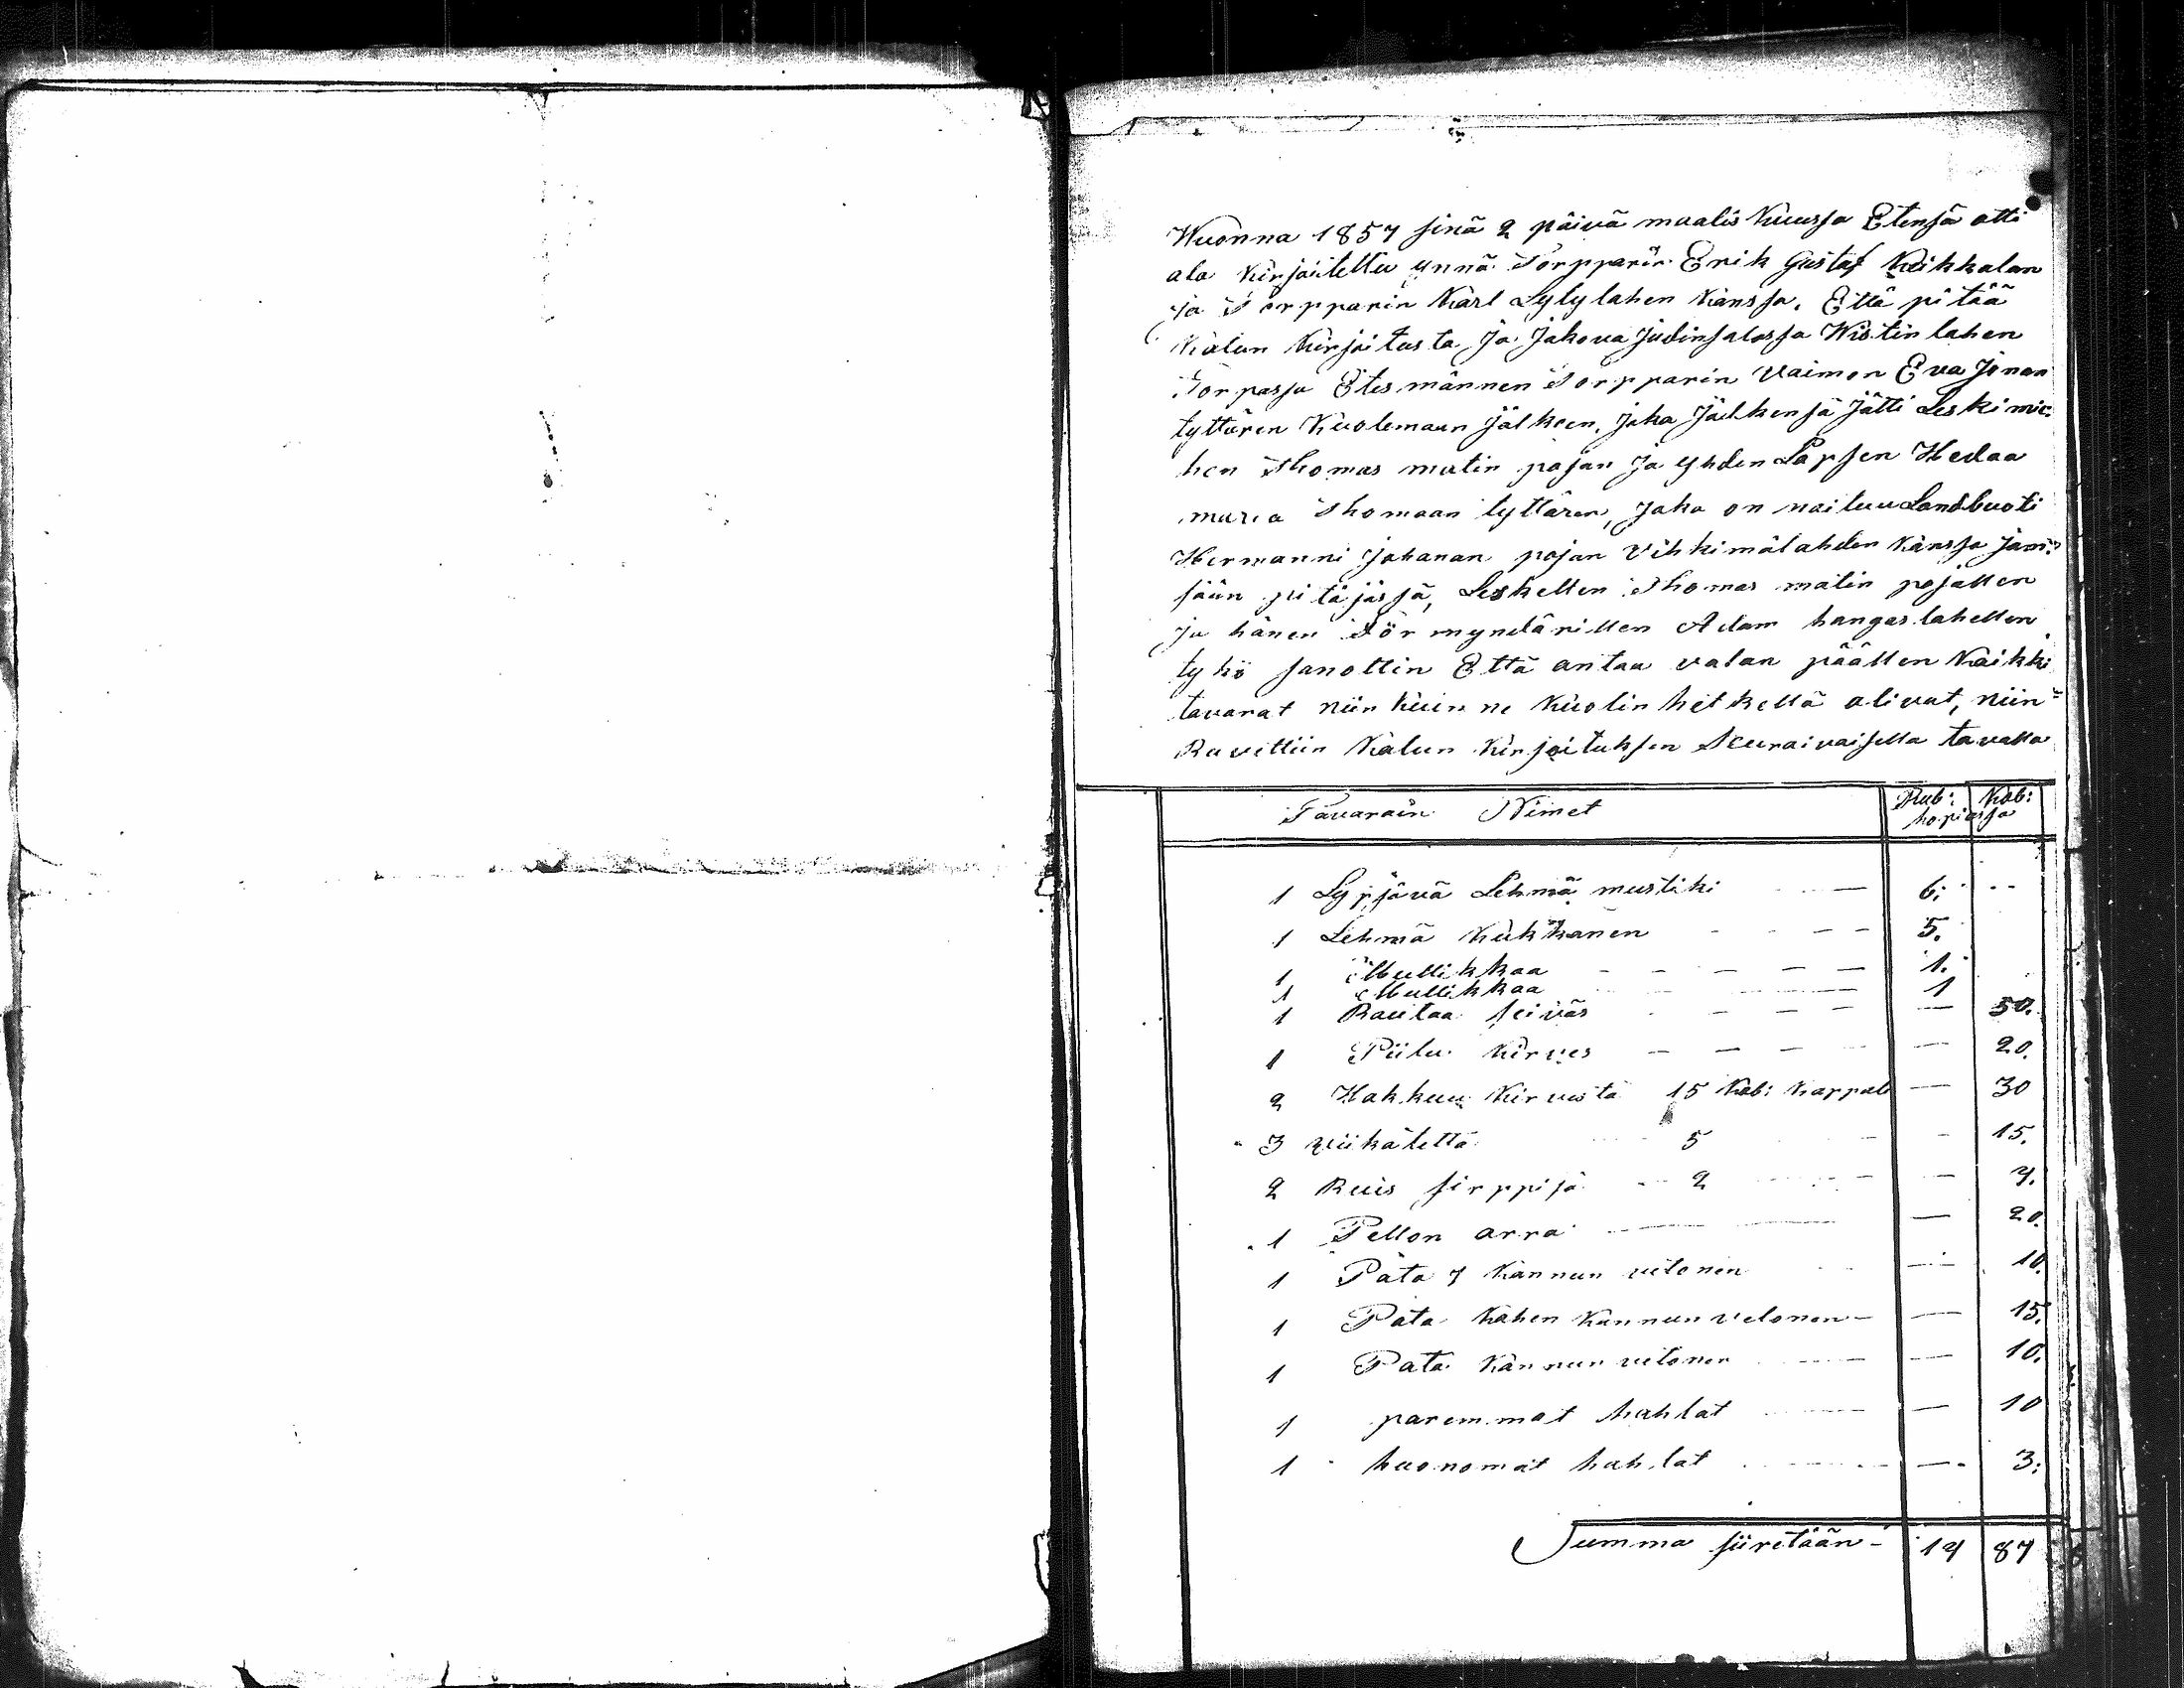 Wuonna 1857 sinä 2 päivä maalis kuussa Etensä otti
ala kirjoitettu ynnä Torpparin Erik Gustaf Keikkalan
ja Torpparin Karl Lylylahen kanssa, Että pitää
Kalun kirjoitusta ja jakoa Judinsalossa Wistin lahen
Torpassa Etesmännen Torpparin Vaimon Eva Jonan
tyttären kuolemaan jälkeen, joka jälkensä jätti Leski mie-
hen Thomas matin pojan ja yhden Lapsen Hedaa
maria Thomaan tyttären, joka on naituu Landbuoti
Hermanni Johanan pojan Vihkimälahden kanssa Jäm-
sään pitäjässä, Leskellen Thomas matin pojallen
ja hänen Förmyndärillen Adam hangaslahellen
tykö sanottin Että antaa valan päällen kaikki
tavarat niin kuin ne kuolin hetkellä olivat, niin
Ruvettiin Kalun kirjoituksen Seuraivaisella tavalla
Tavarain Nimet Rub: Kob:
hopiassa
1 Lypjävä Lehmä mustiki 6:
1 Lehmä kukkanen 5.
1 Mullikkaa 1.
1 Mullikkaa 1
1 Rautaa seiväs 50.
1 Piilu kirves 20.
2 Hakkuu kirvestä 15 Kob: kappale 30
3 viikatetta 5 15.
2 Ruis sirppijä 2 4.
1 Pellon arra 20.
1 Pata 7 kannun vetonen 10.
1 Pata kahen kannun vetonen 15.
1 Pata kannun vetonen 10.
1 paremmat hahlat 10
1 huonomat hahlat 3:
Summa siiretään 14 87